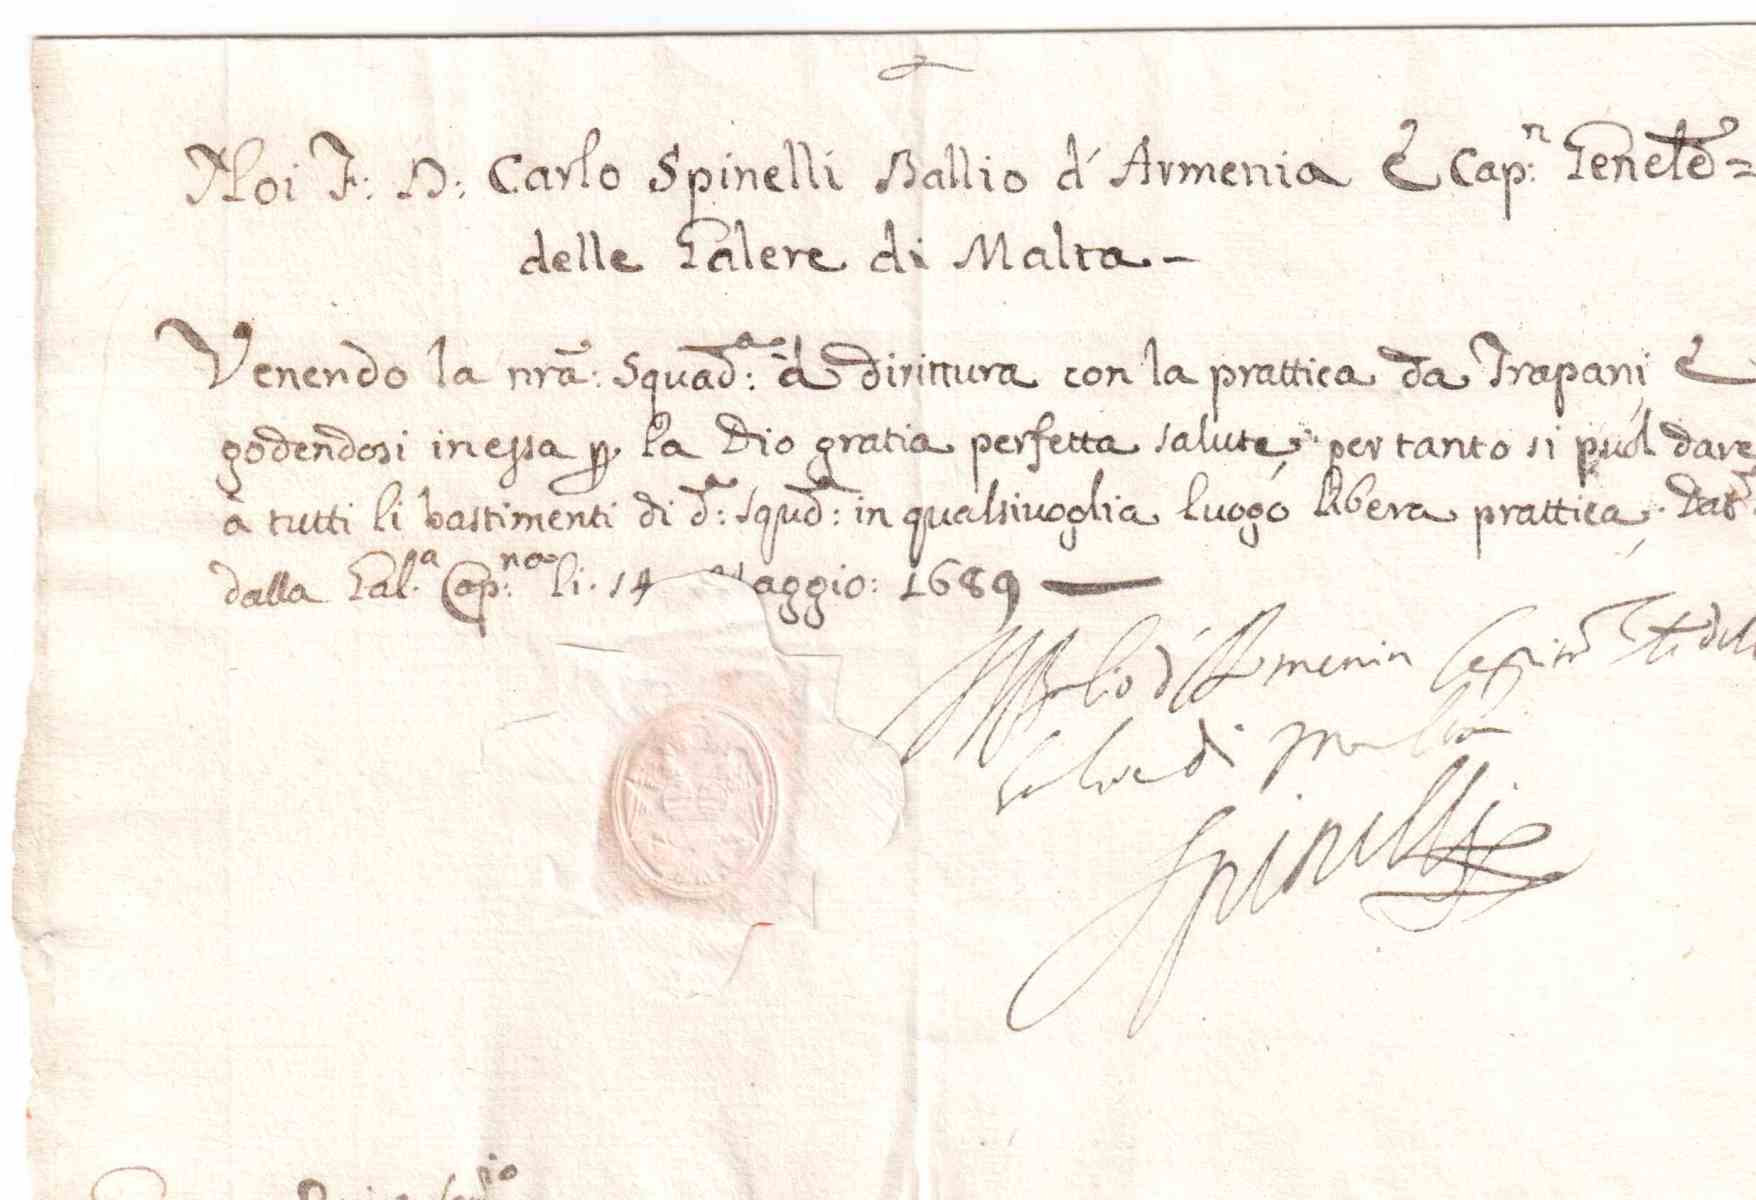 Noi F: D: Carlo Spinelli Ballio d'Armenia è Cap:n Genele=
delle Galere di Malta -
Venendo la nrã: Squad:a à dirittura con la prattica da Trapani è
godendosi in essa p la Dio gratia perfetta salute, per tanto si puol dare
a tutti li bastimenti di d:a squd:a in qualsiuoglia luogo libera prattica. Dat
dalla Gal:a Cap:na li. 14 Maggio: 1689
Il Balio d'Armenia
di Malta
Spinelli